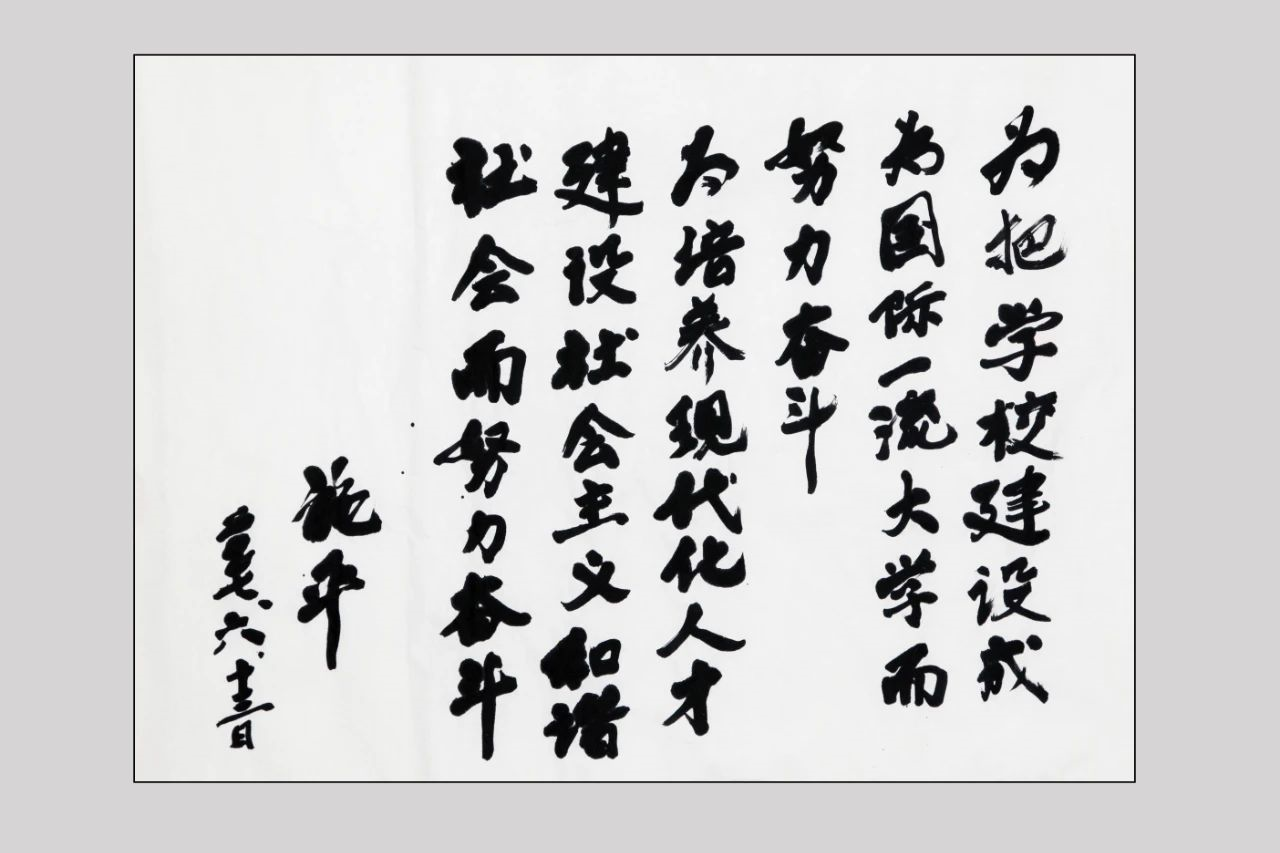 为把学校建设成
为国际一流大学而
努力奋斗
为培养现代化人才
建设社会主义和谐
社会而努力奋斗
施平
六、十三日